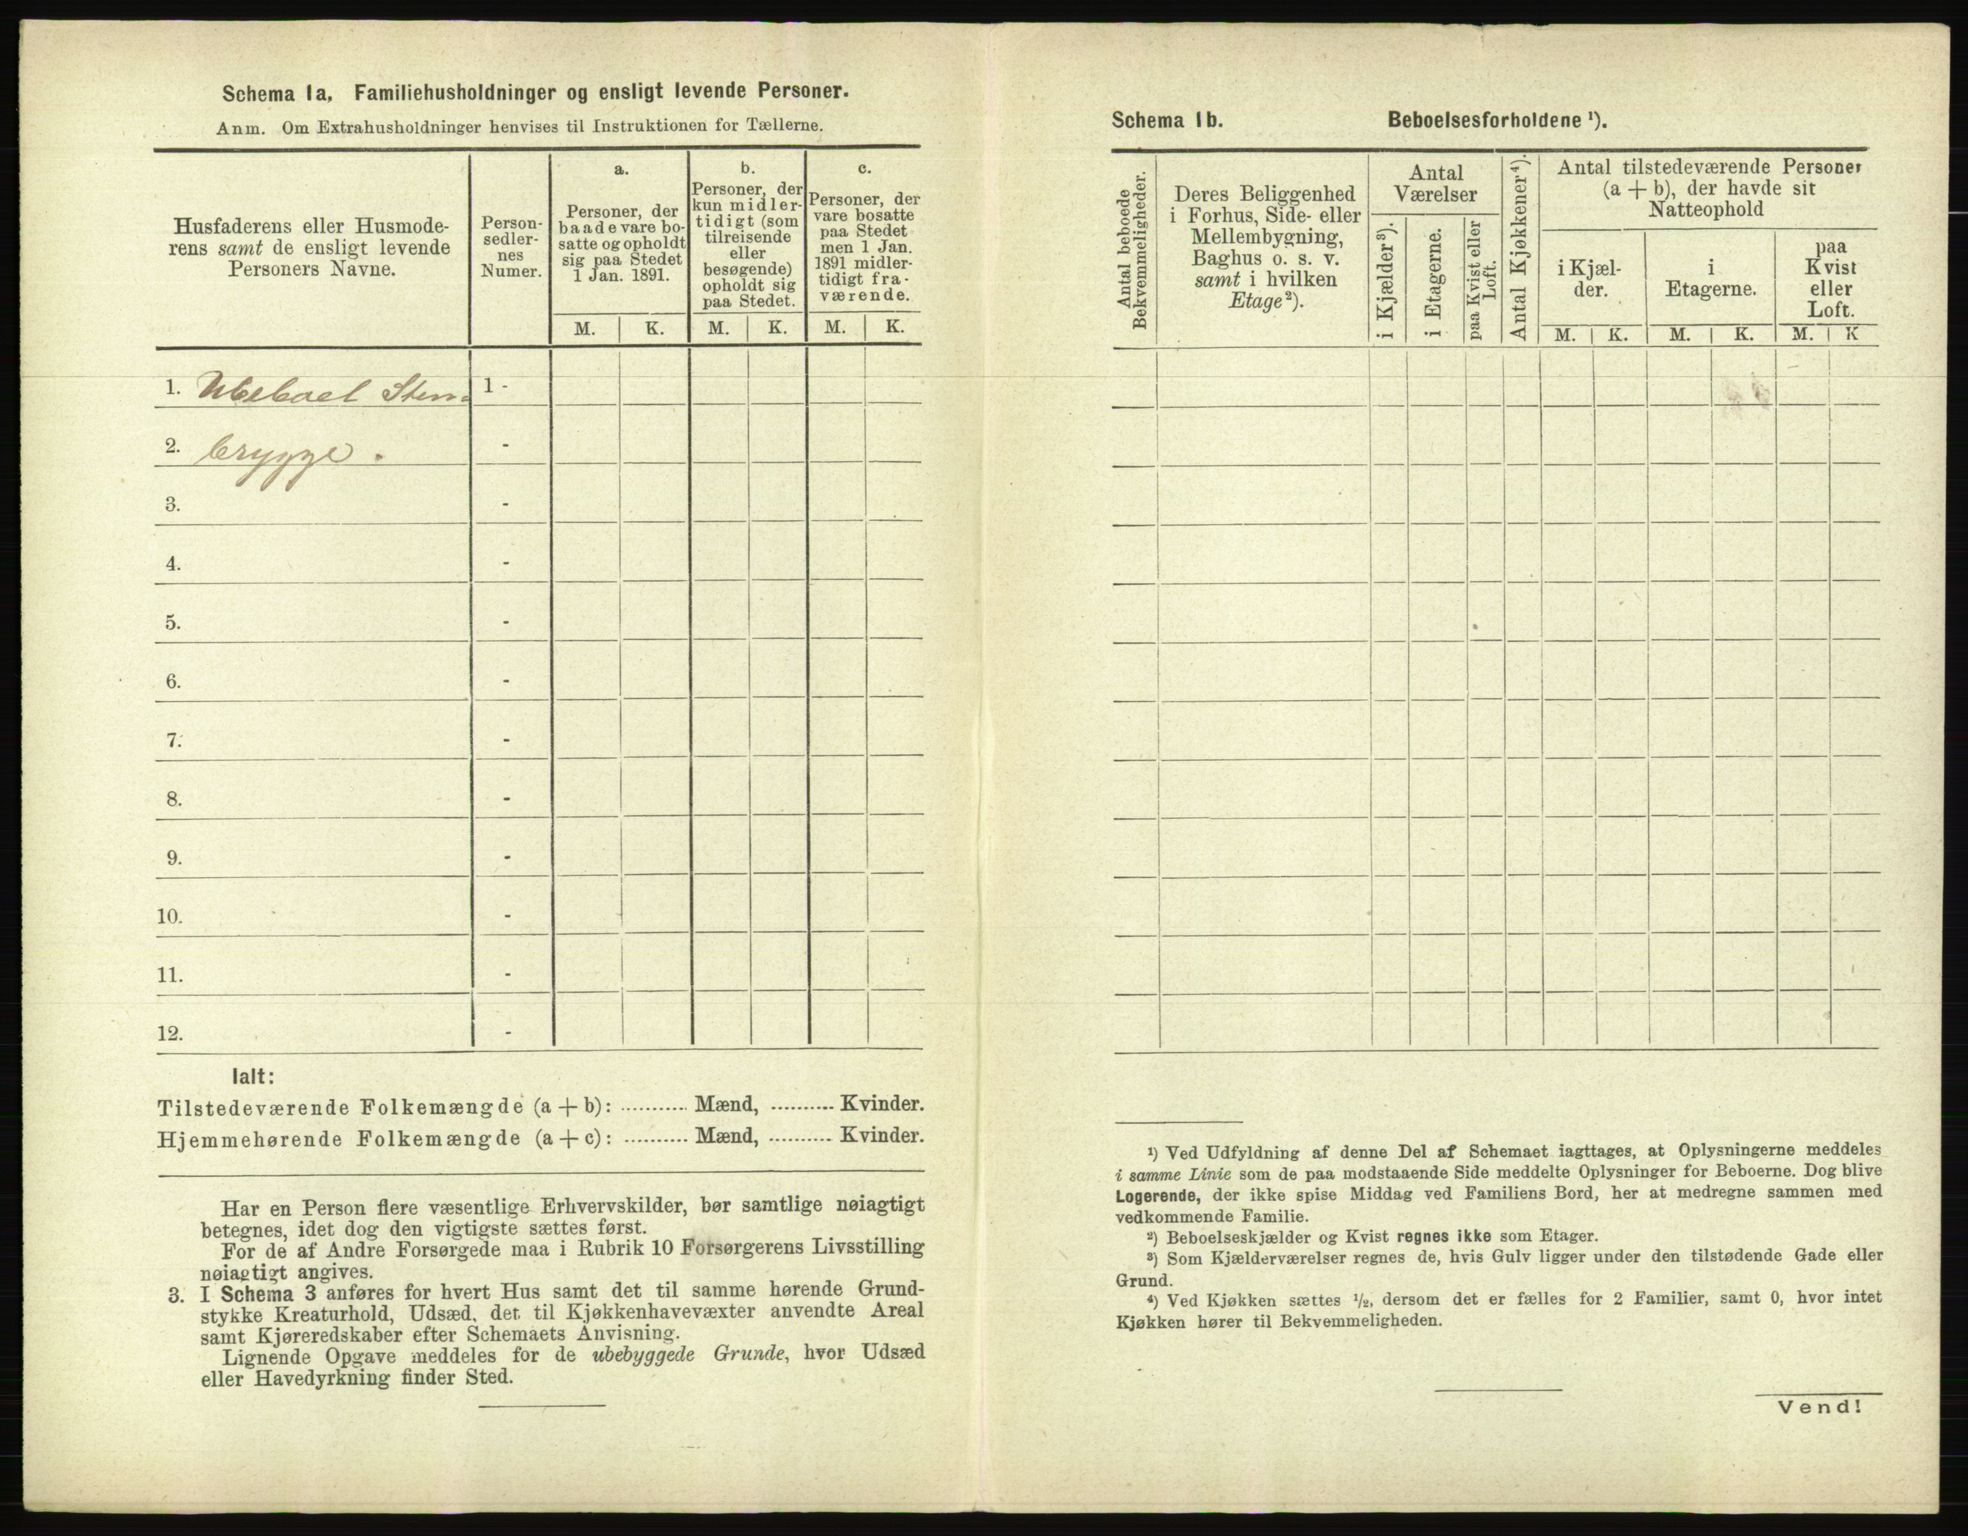 Schema 1a. Familiehusholdninger og ensligt levende Personer.
Anm. Om Extrahusholdninger henvises til Instruktionen for Tællerne.
Husfaderens eller Husmode-
rens samt de ensligt levende
Personers Navne.
Person-
sedler-
nes
Numer.
a.
Personer, der
baade vare bo-
satte og opholdt
sig paa Stedet
1 Jan. 1891.
b.
Personer, der
kun midler-
tidigt (som
tilreisende
eller
besøgende)
opholdt sig
paa Stedet.
c.
Personer, der
vare bosatte
paa Stedet
men 1 Jan.
1891 midler-
tidigt fra-
værende.
M. K. M. K. M. K.
1. Ubeboet Sten- 1 -
2. brygge. -
3. -
4. -
5. -
6. -
7. -
8. -
9. -
10. -
11. -
12. -
Ialt:
Tilstedeværende Folkemængde (a + b): ........... Mænd, ........... Kvinder.
Hjemmehørende Folkemængde (a + c): ........... Mænd, ........... Kvinder.
Har en Person flere væsentlige Erhvervskilder, bør samtlige nøiagtigt
betegnes, idet dog den vigtigste sættes først.
For de af Andre Forsørgede maa i Rubrik 10 Forsørgerens Livsstilling
nøiagtigt angives.
3. I Schema 3 anføres for hvert Hus samt det til samme hørende Grund-
stykke Kreaturhold, Udsæd, det til Kjøkkenhavevæxter anvendte Areal
samt Kjøreredskaber efter Schemaets Anvisning.
Lignende Opgave meddeles for de ubebyggede Grunde, hvor Udsæd
eller Havedyrkning finder Sted.
Schema 1b. Beboelsesforholdene ¹).
Antal beboede
Bekvemmeligheder.
Deres Beliggenhed
i Forhus, Side- eller
Mellembygning,
Baghus o. s. v.
samt i hvilken
Etage²).
Antal
Værelser
i Kjælder³).
i Etagerne.
paa Kvist eller
Loft.
Antal Kjøkkener⁴).
Antal tilstedeværende Personer
(a + b), der havde sit
Natteophold
i Kjæl-
der.
i
Etagerne.
paa
Kvist
eller
Loft.
M. K. M. K. M. K
¹) Ved Udfyldning af denne Del af Schemaet iagttages, at Oplysningerne meddeles
i samme Linie som de paa modstaaende Side meddelte Oplysninger for Beboerne. Dog blive
Logerende, der ikke spise Middag ved Familiens Bord, her at medregne sammen med
vedkommende Familie.
²) Beboelseskjælder og Kvist regnes ikke som Etager.
³) Som Kjælderværelser regnes de, hvis Gulv ligger under den tilstødende Gade eller
Grund.
⁴) Ved Kjøkken sættes ½, dersom det er fælles for 2 Familier, samt 0, hvor intet
Kjøkken hører til Bekvemmeligheden.
Vend!